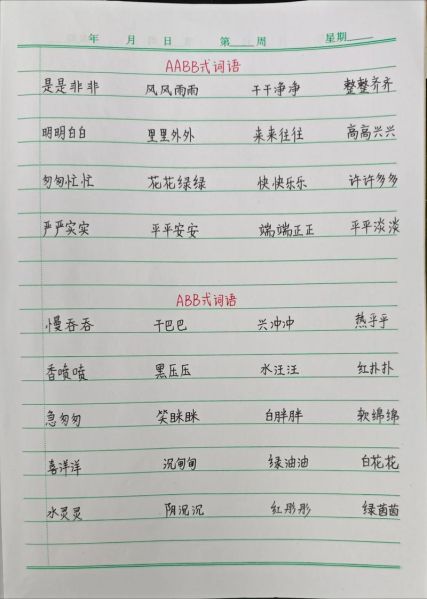 年 月 日 第 周 星期
AABB式词语
是是非非 风风雨雨 干干净净 整整齐齐
明明白白 里里外外 来来往往 高高兴兴
匆匆忙忙 花花绿绿 快快乐乐 许许多多
严严实实 平平安安 端端正正 平平淡淡
ABB式词语
慢吞吞 干巴巴 兴冲冲 热乎乎
香喷喷 黑压压 水汪汪 红扑扑
急匆匆 笑眯眯 白胖胖 软绵绵
喜洋洋 沉甸甸 绿油油 白花花
水灵灵 阴沉沉 红彤彤 绿茵茵